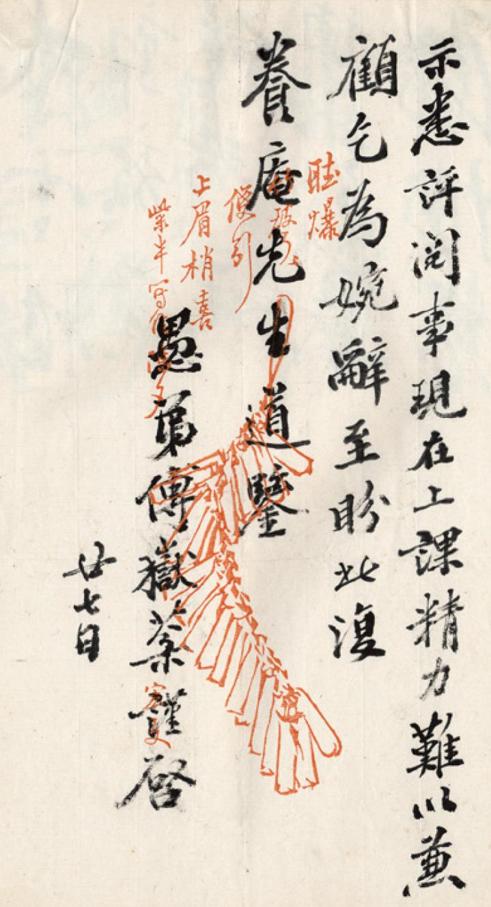 示悉評閱事現在上課精力難以兼
顧乞為婉辭至盼此復
養庵先生道鑒
愚弟傅嶽棻謹啓
廿七日
爆
引
上眉梢喜